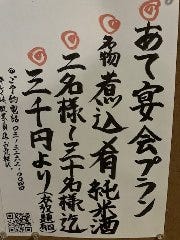 あて宴会プラン
名物煮込肴純米酒
二名様〜三十名様迄
三千円より
ご予約電話